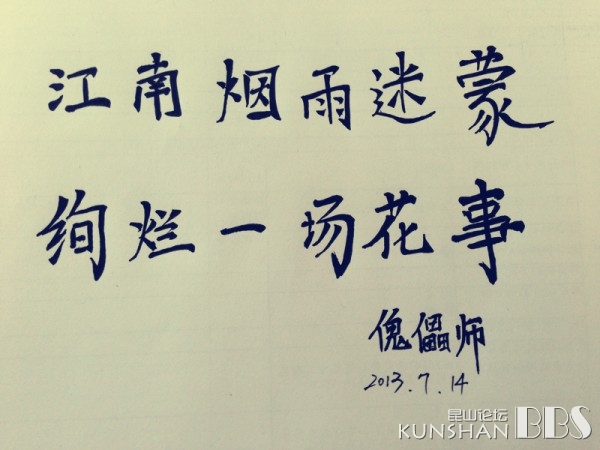 江南烟雨迷蒙
绚烂一场花事
傀儡师
2013.7.14
昆山论坛
KUNSHAN BBS